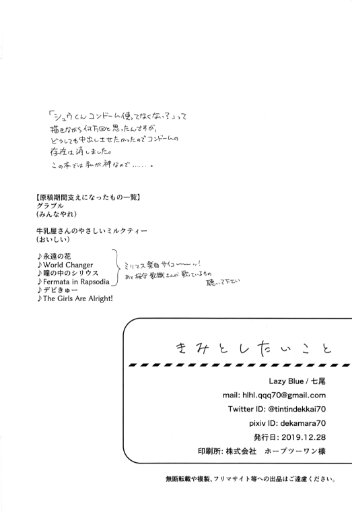 「シュウくんコンドーム使ってなくない？」って
描きながら何万回と思ったんですが、
どうしても中出しさせたかったのでコンドームの
存在は消しました。
この本では私が神なので……。
【原稿期間支えになったもの一覧】
グラブル
(みんなやれ)
牛乳屋さんのやさしいミルクティー
(おいしい)
♪永遠の花
♪World Changer
♪瞳の中のシリウス
♪Fermata in Rapsodia
♪デビきゅー
♪The Girls Are Alright!
ミリマス楽曲サイコーーッ!
聴いて下さい
きみとしたいこと
Lazy Blue / 七尾
mail: hlhl.qqq70@gmail.com
Twitter ID: @tintindekkai70
pixiv ID: dekamara70
発行日: 2019.12.28
印刷所: 株式会社　ホープツーワン様
無断転載や複製、フリマサイト等への出品はご遠慮ください。